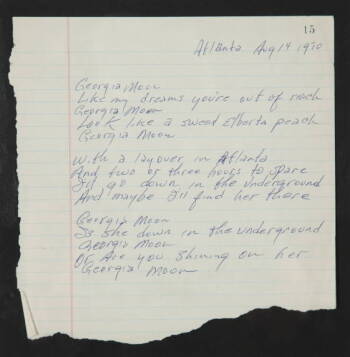 15
Atlanta Aug 14 1970
Georgia Moon
Like my dreams you're out of reach
Georgia Moon
Look like a sweet Elberta peach
Georgia Moon
With a layover in Atlanta
And two or three hours to spare
I'll go down in the underground
And maybe I'll find her there
Georgia Moon
Is she down in the underground
Georgia Moon
Or Are you shining on her
Georgia Moon